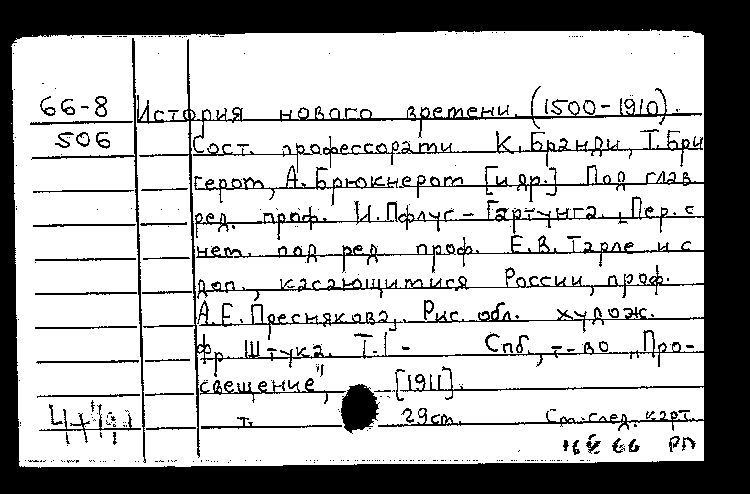 66-8 История нового времени (1500-1910).
506 Сост. профессорами К. Бранди, Т. Бри
гером, А. Брюкнером [и др.] Под глав.
ред. проф. И. Пфлуг-Гартунга. Пер. с
нем. под ред проф. Е.В. Тарле и с
доп., касающимися России, проф.
А.Е. Преснякова. Рис. обл. худож.
Фр. Штука. Т.1- Спб., т-во „Про-
свещение", [1911].
т. 29см. См. след. карт.
66 РП